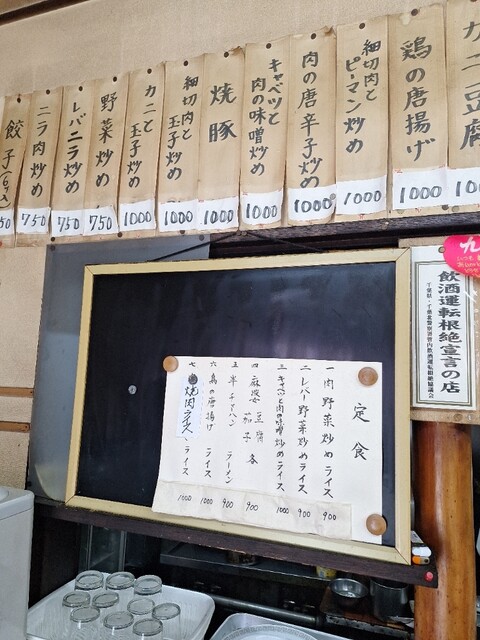 カニ豆腐
鶏の唐揚げ 1000
細切肉とピーマン炒め 1000
肉の唐辛子炒め 1000
キャベツと肉の味噌炒め 1000
焼豚 1000
細切肉と玉子炒め 1000
カニと玉子炒め 1000
野菜炒め 750
レバニラ炒め 750
ニラ肉炒め 750
餃子(6ヶ入)
定食
一 肉野菜炒めライス 900
二 レバー野菜炒めライス 900
三 キャベツと肉の味噌炒めライス 1000
四 麻婆豆腐茄子各 900
五 半チャーハン ラーメン 900
六 鳥の唐揚げ ライス 1000
七 焼肉ライス ライス 1000
飲酒運転根絶宣言の店
千葉県・千葉北警察署管内飲酒運転根絶協議会